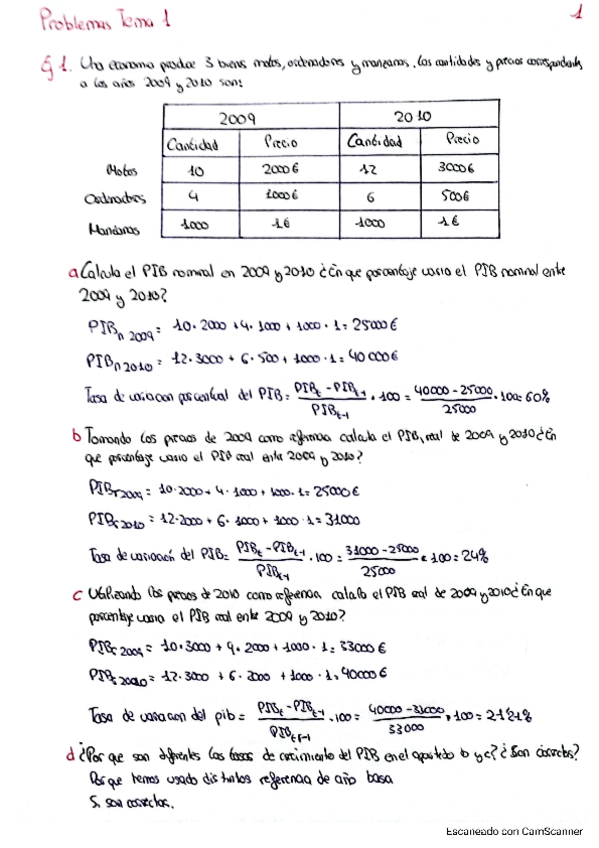 Problemas Tema 1
1
Ej 1. Una economia produce 3 bienes motos, ordenadores y manzanas. Las cantidades y precios correspondientes
a los años 2009 y 2010 son:
2009 2010
Cantidad Precio Cantidad Precio
Motos 10 2000€ 12 3000€
Ordenadores 4 1000€ 6 500€
Manzanas 1000 1€ 1000 1€
a Calcula el PIB nominal en 2009 y 2010 ¿En que porcentaje vario el PIB nominal entre
2009 y 2010?
PIBn 2009 = 10·2000 + 4·1000 + 1000·1 = 25000€
PIBn 2010 = 12·3000 + 6·500 + 1000·1 = 40000€
Tasa de variacion porcentual del PIB = PIBt - PIBt-1 / PIBt-1 · 100 = 40000 - 25000 / 25000 · 100 = 60%
b Tomando los precios de 2009 como referencia calcula el PIB, real de 2009 y 2010 ¿En
que porcentaje vario el PIB real entre 2009 y 2010?
PIBr 2009 = 10·2000 + 4·1000 + 1000·1 = 25000€
PIBr 2010 = 12·2000 + 6·1000 + 1000·1 = 31000
Tasa de variación del PIB = PIBt - PIBt-1 / PIBt-1 · 100 = 31000 - 25000 / 25000 · 100 = 24%
c Utilizando los precios de 2010 como referencia calcula el PIB real de 2009 y 2010 ¿En que
porcentaje vario el PIB real entre 2009 y 2010?
PIBr 2009 = 10·3000 + 4·2000 + 1000·1 = 33000€
PIBr 2010 = 12·3000 + 6·2000 + 1000·1 = 40000€
Tasa de variacion del pib = PIBt - PIBt-1 / PIBt-1 · 100 = 40000 - 33000 / 33000 · 100 = 21'21%
d ¿Por que son diferentes las tasas de crecimiento del PIB en el apartado b y c? ¿Son correctas?
Porque hemos usado distintos referencia de año base
Si son correctas.
Escaneado con CamScanner